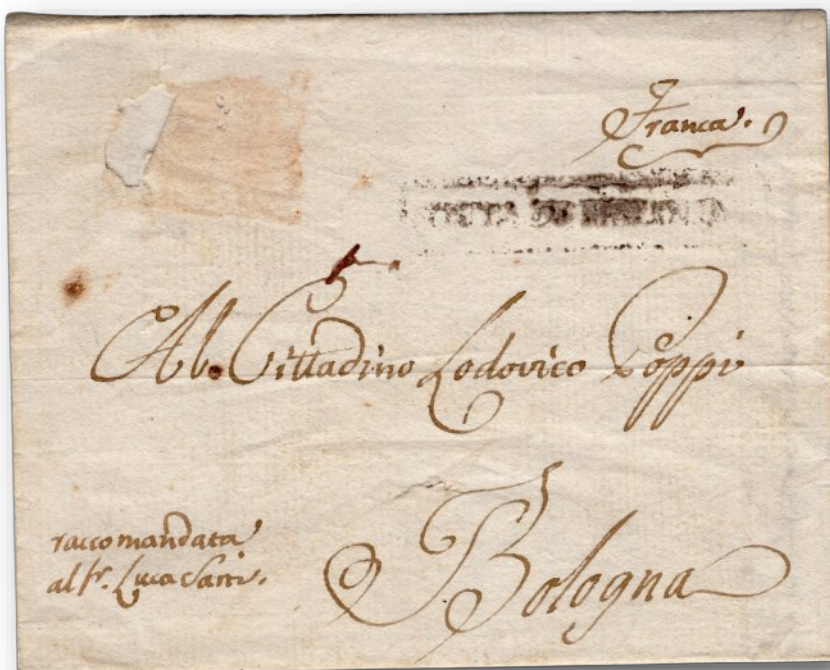 Franca.
Al Cittadino Lodovico Poppi
Bologna
raccomandata
al Luca Sarti.